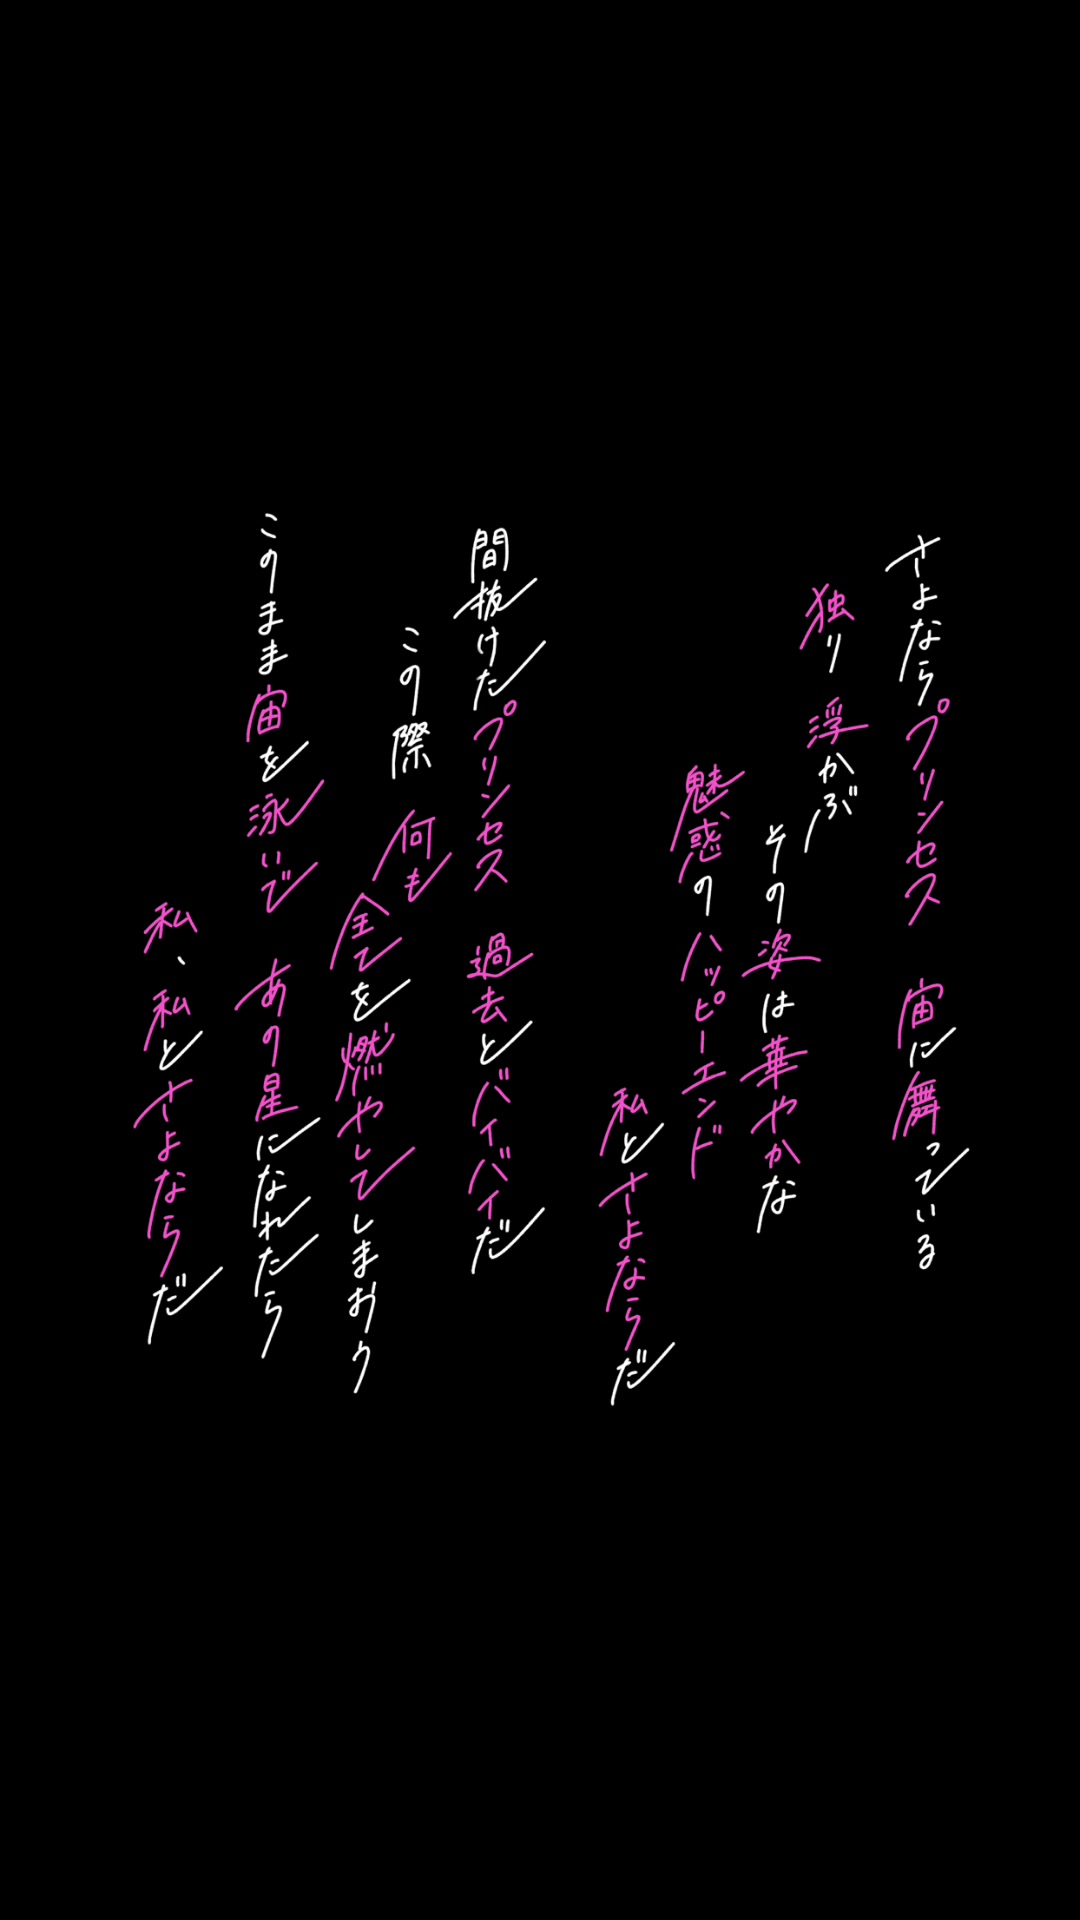 さよならプリンセス　宙に舞っている
独り 浮かぶ
その姿は華やかな
魅惑のハッピーエンド
私とさよならだ
間抜けたプリンセス　過去とバイバイだ
この際　何も
全てを燃やしてしまおう
このまま宙を泳いで　あの星になれたら
私、私とさよならだ